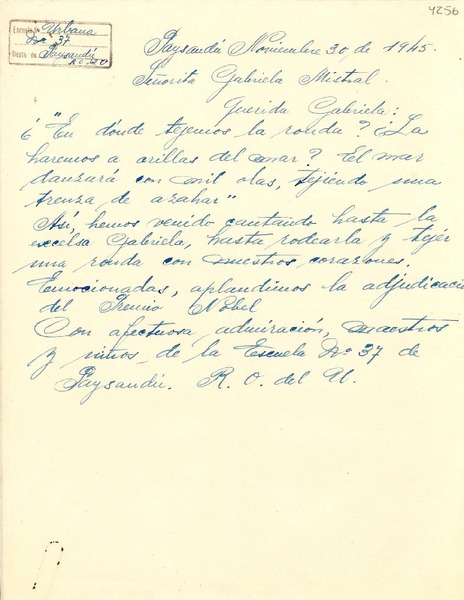 4256
Escuela Urbana
No 37
Depto. de Paysandú
R. O. del U
Paysandú Noviembre 30, de 1945.
Señorita Gabriela Mistral.
Querida Gabriela:
¿"En dónde tejemos la ronda? ¿La
haremos a orillas del mar? El mar
danzará con mil olas, tejiendo una
trenza de azahar"
Así, hemos venido cantando hasta la
excelsa Gabriela, hasta rodearla y tejer
una ronda con nuestros corazones.
Emocionadas, aplaudimos la adjudicación
del Premio Nóbel
Con afectuosa admiración, maestros
y niños de la Escuela No 37 de
Paysandú. R. O. del U.